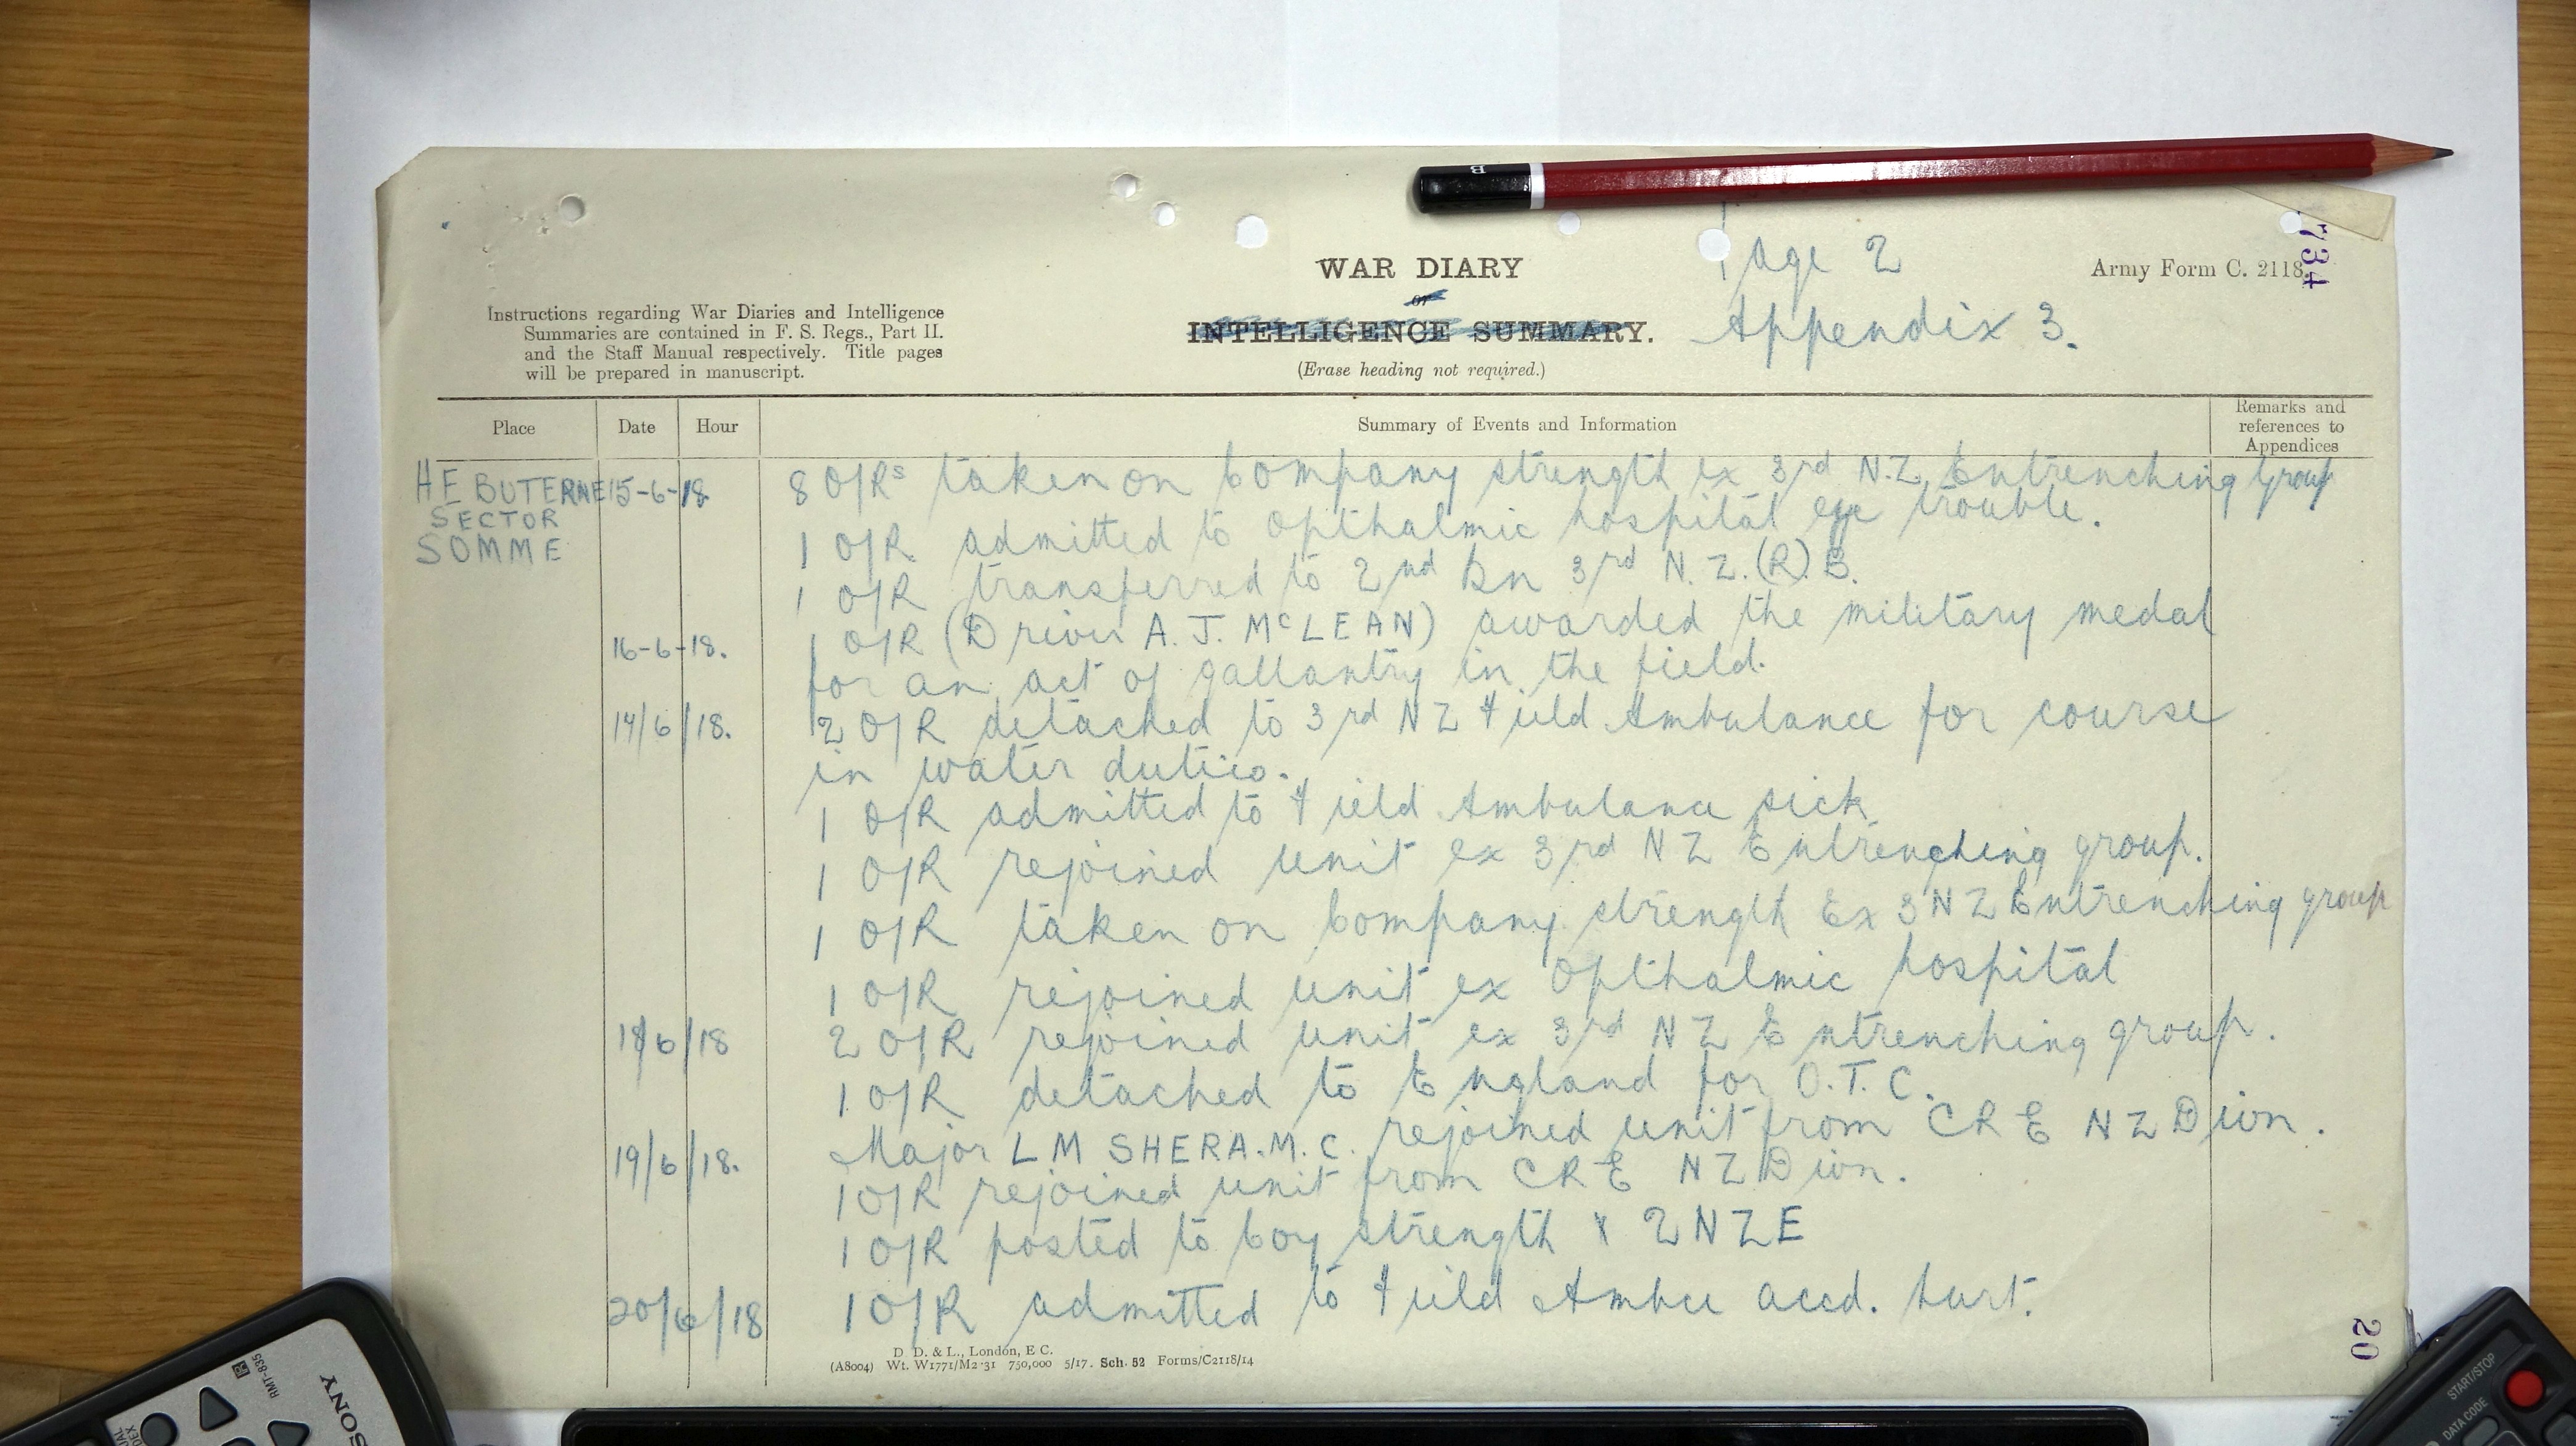 B
734
WAR DIARY
Page 2
Army Form C. 2118.
or
INTELLIGENCE SUMMARY.
Appendix 3.
(Erase heading not required.)
Instructions regarding War Diaries and Intelligence
Summaries are contained in F. S. Regs., Part II.
and the Staff Manual respectively. Title pages
will be prepared in manuscript.
Place Date Hour Summary of Events and Information Remarks and references to Appendices
HEBUTERNE 15-6-18. 8 O/Rs taken on Company strength ex 3rd N.Z. Entrenching Group
SECTOR
SOMME
1 O/R admitted to Opthalmic hospital eye trouble.
1 O/R transferred to 2nd Bn 3rd N.Z.(R).B.
16-6-18. 1 O/R (Driver A. J. McLEAN) awarded the military medal
for an act of gallantry in the field.
14/6/18. 2 O/R detached to 3rd NZ Field Ambulance for course
in water duties.
1 O/R admitted to Field Ambulance sick
1 O/R rejoined unit ex 3rd NZ Entrenching group.
1 O/R taken on Company strength Ex 3 NZ Entrenching group
1 O/R rejoined unit ex Opthalmic hospital
18/6/18 2 O/R rejoined unit ex 3rd NZ Entrenching group.
1 O/R detached to England for O.T.C.
19/6/18. Major L M SHERA. M.C. rejoined unit from CRE NZ Divn.
1 O/R rejoined unit from CRE NZ Divn.
1 O/R posted to Coy strength x 2 NZE
20/6/18 1 O/R admitted to Field Ambce accd. hurt.
D. D. & L., London, E C.
(A8004) Wt. W1771/M2 31 750,000 5/17. Sch. 52 Forms/C2118/14
20
SONY
RMT-835
START/STOP
DATA CODE